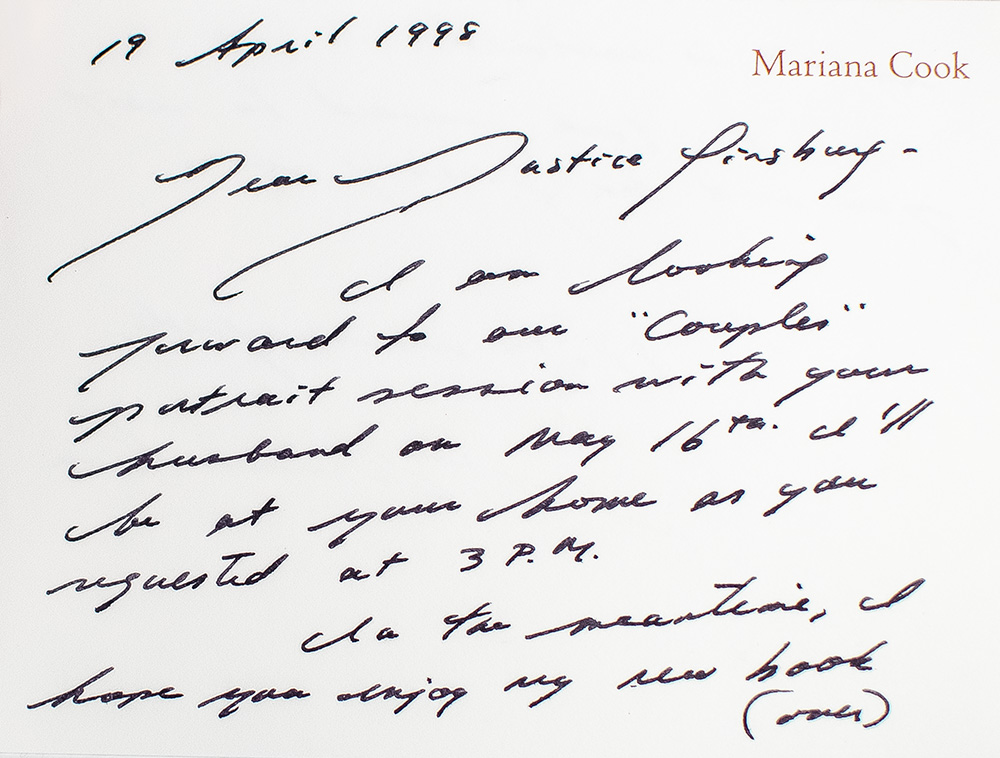 19 April 1998
Mariana Cook
Dear Justice Ginsburg -
I am looking
forward to our "Couples"
portrait session with your
husband on May 16th. I'll
be at your home as you
requested at 3 P.M.
In the meantime, I
hope you enjoy my new book
(over)